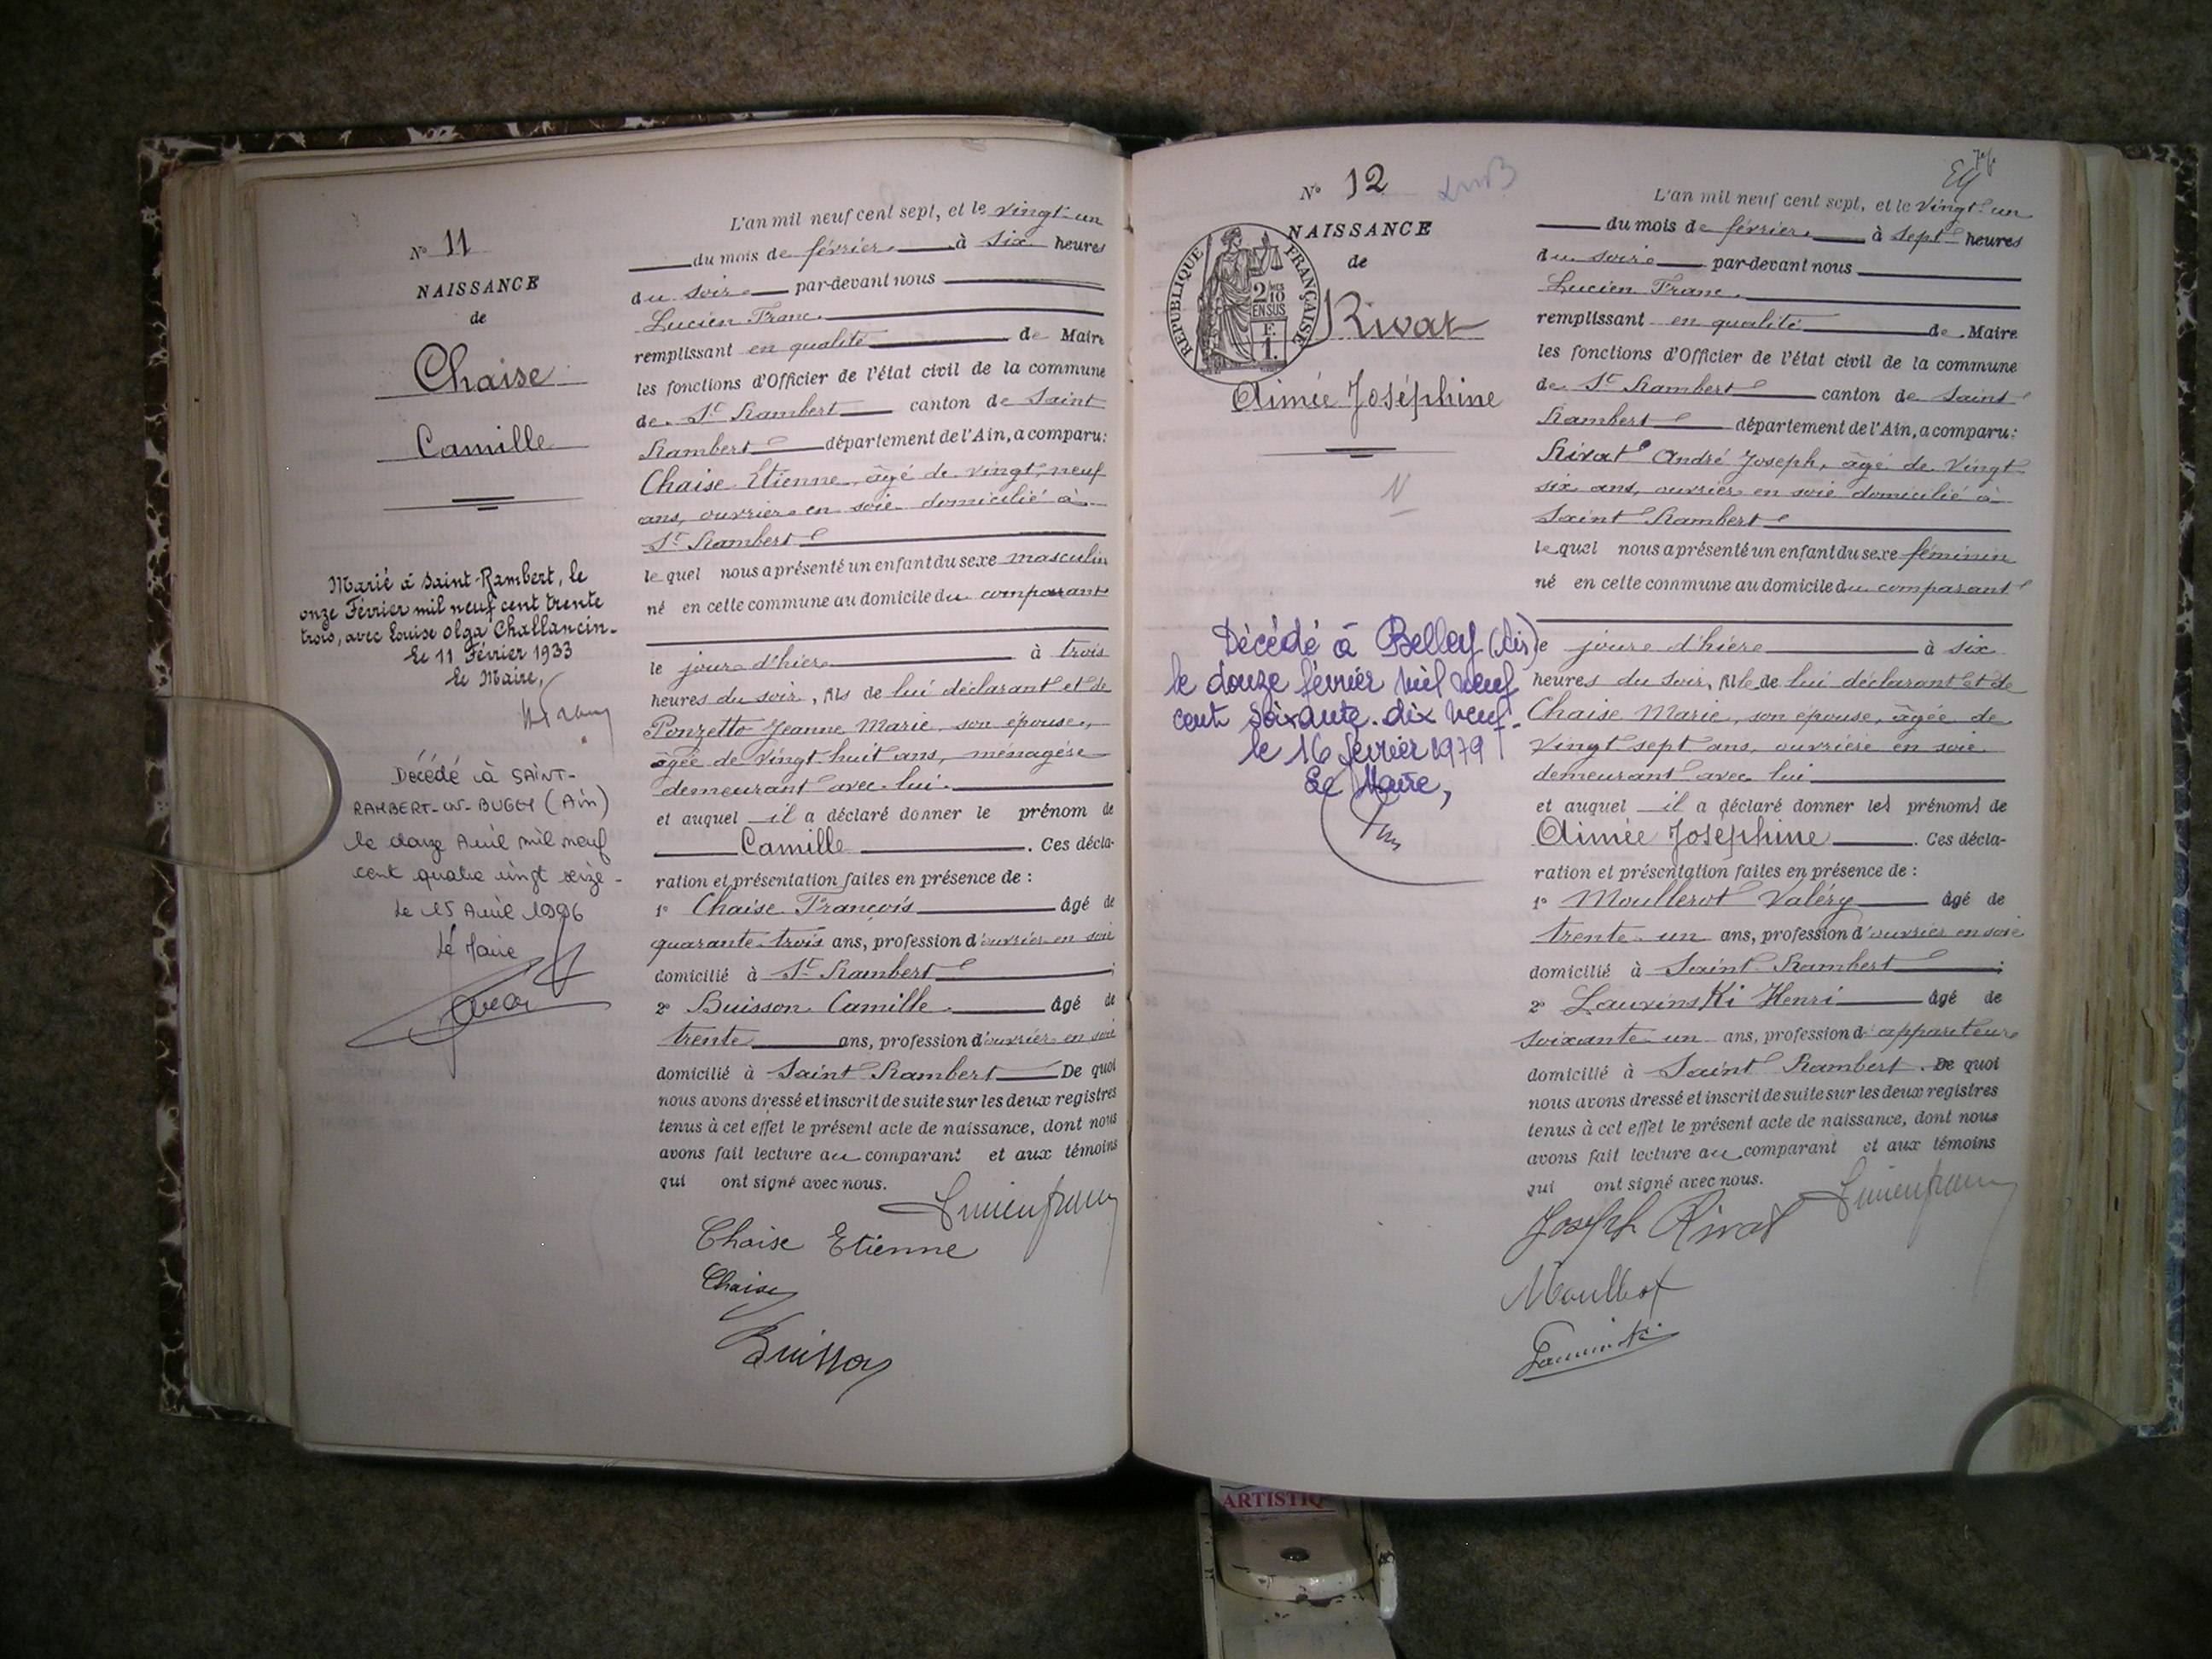 Nº 11
NAISSANCE
de
Chaise
Camille
Marié à Saint-Rambert, le
onze Février mil neuf cent trente
trois, avec Louise Olga Challancin.
Le 11 Février 1933
Le Maire,
Décédé à SAINT-
RAMBERT-EN-BUGEY (Ain)
le douze Avril mil neuf
cent quatre vingt seize -
Le 15 Avril 1996
Le Maire
L'an mil neuf cent sept, et le vingt-un
du mois de février à six heures
du soir par-devant nous
Lucien Franc.
remplissant en qualité de Maire
les fonctions d'Officier de l'état civil de la commune
de St Rambert canton de Saint
Rambert département de l'Ain, a comparu:
Chaise Etienne, âgé de vingt-neuf
ans, ouvrier en soie domicilié à
St Rambert
lequel nous a présenté un enfant du sexe masculin
né en cette commune au domicile du comparant
le jour d'hier à trois
heures du soir, fils de lui déclarant et de
Ponzetto Jeanne Marie, son épouse,
âgée de vingt-huit ans, ménagère
demeurant avec lui.
et auquel il a déclaré donner le prénom de
Camille. Ces décla-
ration et présentation faites en présence de :
1º Chaise François âgé de
quarante-trois ans, profession d'ouvrier en soie
domicilié à St Rambert ;
2º Buisson Camille âgé de
trente ans, profession d'ouvrier en soie
domicilié à Saint Rambert De quoi
nous avons dressé et inscrit de suite sur les deux registres
tenus à cet effet le présent acte de naissance, dont nous
avons fait lecture au comparant et aux témoins
qui ont signé avec nous.
Lucien Franc
Chaise Etienne
Chaise
Buisson
Nº 12
NAISSANCE
de
RÉPUBLIQUE FRANÇAISE
2/10
EN SUS
F.
1.
Rivat
Aimée Joséphine
Décédé à Belley (Ain)
le douze février mil neuf
cent soixante-dix neuf.
le 16 février 1979
Le Maire,
L'an mil neuf cent sept, et le vingt-un
du mois de février à sept heures
du soir par-devant nous
Lucien Franc.
remplissant en qualité de Maire
les fonctions d'Officier de l'état civil de la commune
de St Rambert canton de Saint
Rambert département de l'Ain, a comparu:
Rivat André Joseph, âgé de vingt
six ans, ouvrier en soie domicilié à
Saint Rambert
lequel nous a présenté un enfant du sexe féminin
né en cette commune au domicile du comparant
le jour d'hier à six
heures du soir, fille de lui déclarant et de
Chaise Marie, son épouse, âgée de
vingt sept ans, ouvrière en soie
demeurant avec lui
et auquel il a déclaré donner les prénoms de
Aimée Joséphine. Ces décla-
ration et présentation faites en présence de :
1º Moullerot Valéry âgé de
trente-un ans, profession d'ouvrier en soie
domicilié à Saint Rambert ;
2º Lauvinski Henri âgé de
soixante-un ans, profession d'appariteur
domicilié à Saint Rambert. De quoi
nous avons dressé et inscrit de suite sur les deux registres
tenus à cet effet le présent acte de naissance, dont nous
avons fait lecture au comparant et aux témoins
qui ont signé avec nous.
Lucien Franc
Joseph Rivat
ARTISTIQ